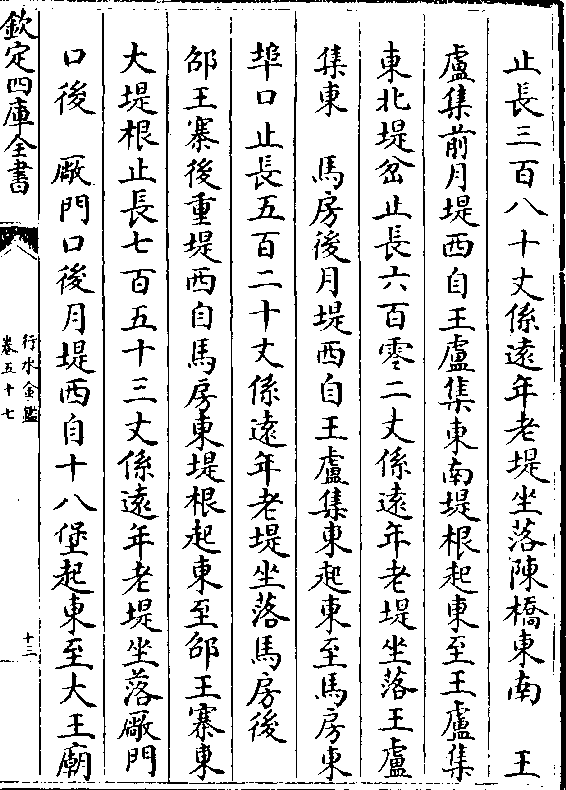 止長三百八十丈係遠年老堤坐落陳橋東南　王
盧集前月堤西自王盧集東南堤根起東至王盧集
東北堤岔止長六百零二丈係遠年老堤坐落王盧
集東　馬房後月堤西自王盧集東起東至馬房東
埠口止長五百二十丈係遠年老堤坐落馬房後
邵王寨後重堤西自馬房東堤根起東至邵王寨東
大堤根止長七百五十三丈係遠年老堤坐落厰門
口後　厰門口後月堤西自十八堡起東至大王廟
欽定四庫全書
行水金鑑
卷五十七
十三